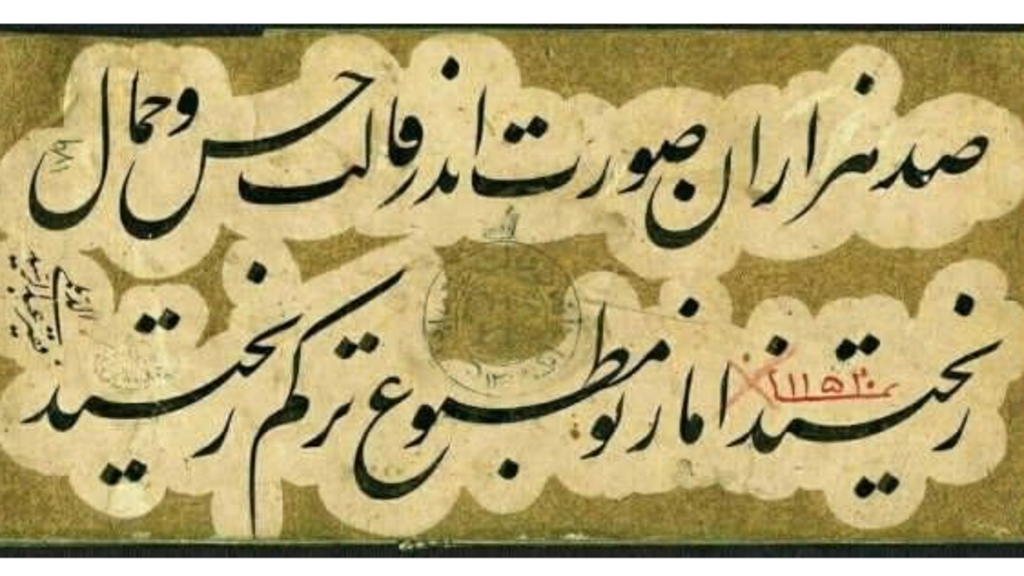 صد هزاران صورت اندر قالب حسن و جمال
ریختند اما ز تو مطبوع تر کم ریختند
۱۱۵۳۰